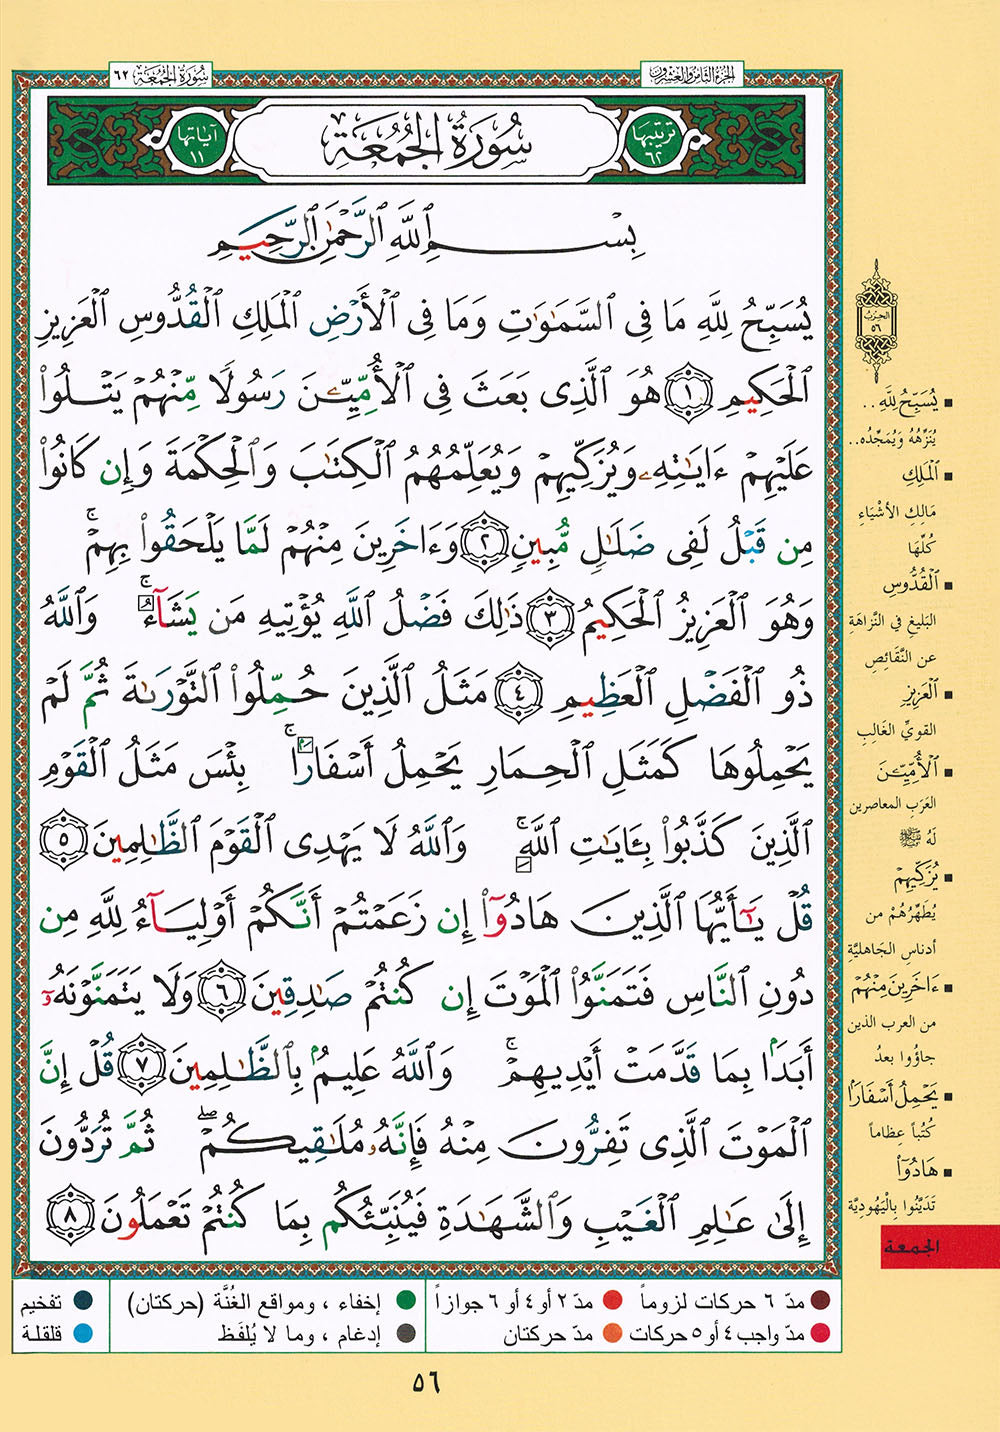 الجزء الثامن والعشرون
سورة الجمعة ٦٢
ترتيبها ٦٢
سُورَةُ الجُمُعَة
آياتها ١١
بِسْمِ ٱللَّهِ ٱلرَّحْمَٰنِ ٱلرَّحِيمِ
يُسَبِّحُ لِلَّهِ مَا فِى ٱلسَّمَٰوَٰتِ وَمَا فِى ٱلْأَرْضِ ٱلْمَلِكِ ٱلْقُدُّوسِ ٱلْعَزِيزِ
ٱلْحَكِيمِ ١ هُوَ ٱلَّذِى بَعَثَ فِى ٱلْأُمِّيِّـۧنَ رَسُولًا مِّنْهُمْ يَتْلُوا۟
عَلَيْهِمْ ءَايَٰتِهِۦ وَيُزَكِّيهِمْ وَيُعَلِّمُهُمُ ٱلْكِتَٰبَ وَٱلْحِكْمَةَ وَإِن كَانُوا۟
مِن قَبْلُ لَفِى ضَلَٰلٍ مُّبِينٍ ٢ وَءَاخَرِينَ مِنْهُمْ لَمَّا يَلْحَقُوا۟ بِهِمْ ۚ
وَهُوَ ٱلْعَزِيزُ ٱلْحَكِيمُ ٣ ذَٰلِكَ فَضْلُ ٱللَّهِ يُؤْتِيهِ مَن يَشَآءُ ۚ وَٱللَّهُ
ذُو ٱلْفَضْلِ ٱلْعَظِيمِ ٤ مَثَلُ ٱلَّذِينَ حُمِّلُوا۟ ٱلتَّوْرَىٰةَ ثُمَّ لَمْ
يَحْمِلُوهَا كَمَثَلِ ٱلْحِمَارِ يَحْمِلُ أَسْفَارًۢا ۚ بِئْسَ مَثَلُ ٱلْقَوْمِ
ٱلَّذِينَ كَذَّبُوا۟ بِـَٔايَٰتِ ٱللَّهِ ۚ وَٱللَّهُ لَا يَهْدِى ٱلْقَوْمَ ٱلظَّٰلِمِينَ ٥
قُلْ يَٰٓأَيُّهَا ٱلَّذِينَ هَادُوٓا۟ إِن زَعَمْتُمْ أَنَّكُمْ أَوْلِيَآءُ لِلَّهِ مِن
دُونِ ٱلنَّاسِ فَتَمَنَّوُا۟ ٱلْمَوْتَ إِن كُنتُمْ صَٰدِقِينَ ٦ وَلَا يَتَمَنَّوْنَهُۥٓ
أَبَدًۢا بِمَا قَدَّمَتْ أَيْدِيهِمْ ۚ وَٱللَّهُ عَلِيمٌۢ بِٱلظَّٰلِمِينَ ٧ قُلْ إِنَّ
ٱلْمَوْتَ ٱلَّذِى تَفِرُّونَ مِنْهُ فَإِنَّهُۥ مُلَٰقِيكُمْ ۖ ثُمَّ تُرَدُّونَ
إِلَىٰ عَٰلِمِ ٱلْغَيْبِ وَٱلشَّهَٰدَةِ فَيُنَبِّئُكُم بِمَا كُنتُمْ تَعْمَلُونَ ٨
الحزب
٥٦
يُسَبِّحُ لِلَّهِ ..
يُنَزِّهُهُ وَيُمَجِّدُه..
ٱلْمَلِكِ
مَالِكِ الأشْيَاءِ
كُلِّهَا
ٱلْقُدُّوسِ
البَليغِ فِي النَّزاهَةِ
عن النَّقَائِصِ
ٱلْعَزِيزِ
القويِّ الغَالِبِ
ٱلْأُمِّيِّـۧنَ
العَرَبِ المعاصرين
لَهُ ﷺ
يُزَكِّيهِمْ
يُطَهِّرُهُمْ من
أدناس الجَاهليَّةِ
ءَاخَرِينَ مِنْهُمْ
من العرب الذين
جاؤُوا بعدُ
يَحْمِلُ أَسْفَارًا
كُتُباً عِظاماً
هَادُوٓا۟
تَدَيَّنُوا بِالْيَهُودِيَّة
الجمعة
مدّ ٦ حركات لزوماً
مدّ ٢ أو ٤ أو ٦ جوازاً
إخفاء ، ومواقع الغُنَّة (حركتان)
تفخيم
مدّ واجب ٤ أو ٥ حركات
مدّ حركتان
إدغام ، وما لا يُلفَظ
قلقلة
٥٦